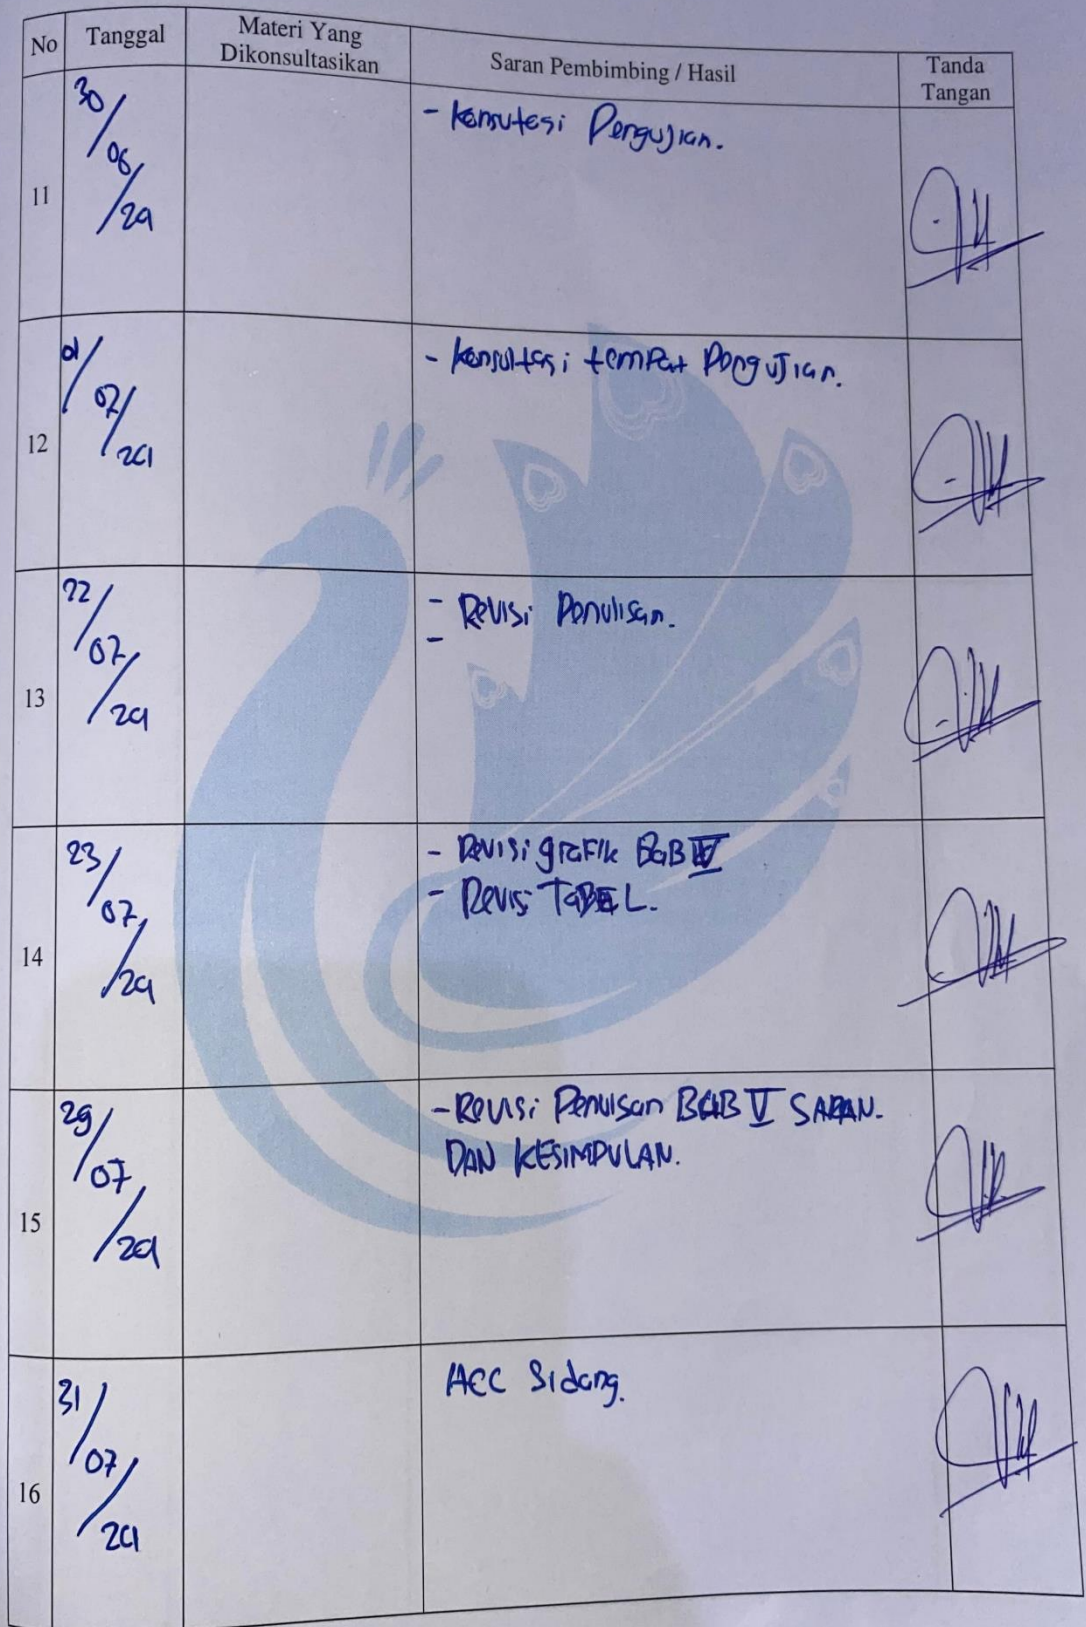 No Tanggal Materi Yang Dikonsultasikan Saran Pembimbing / Hasil Tanda Tangan
11 30/06/24 - Konsutasi Pengujian.
12 01/07/24 - Konsultasi tempat Pengujian.
13 22/07/24 - Revisi Penulisan.
-
14 23/07/24 - Revisi grafik BAB IV
- Revisi TABEL.
15 29/07/24 - Revisi Penuisan BAB V SARAN.
DAN KESIMPULAN.
16 31/07/24 ACC Sidang.